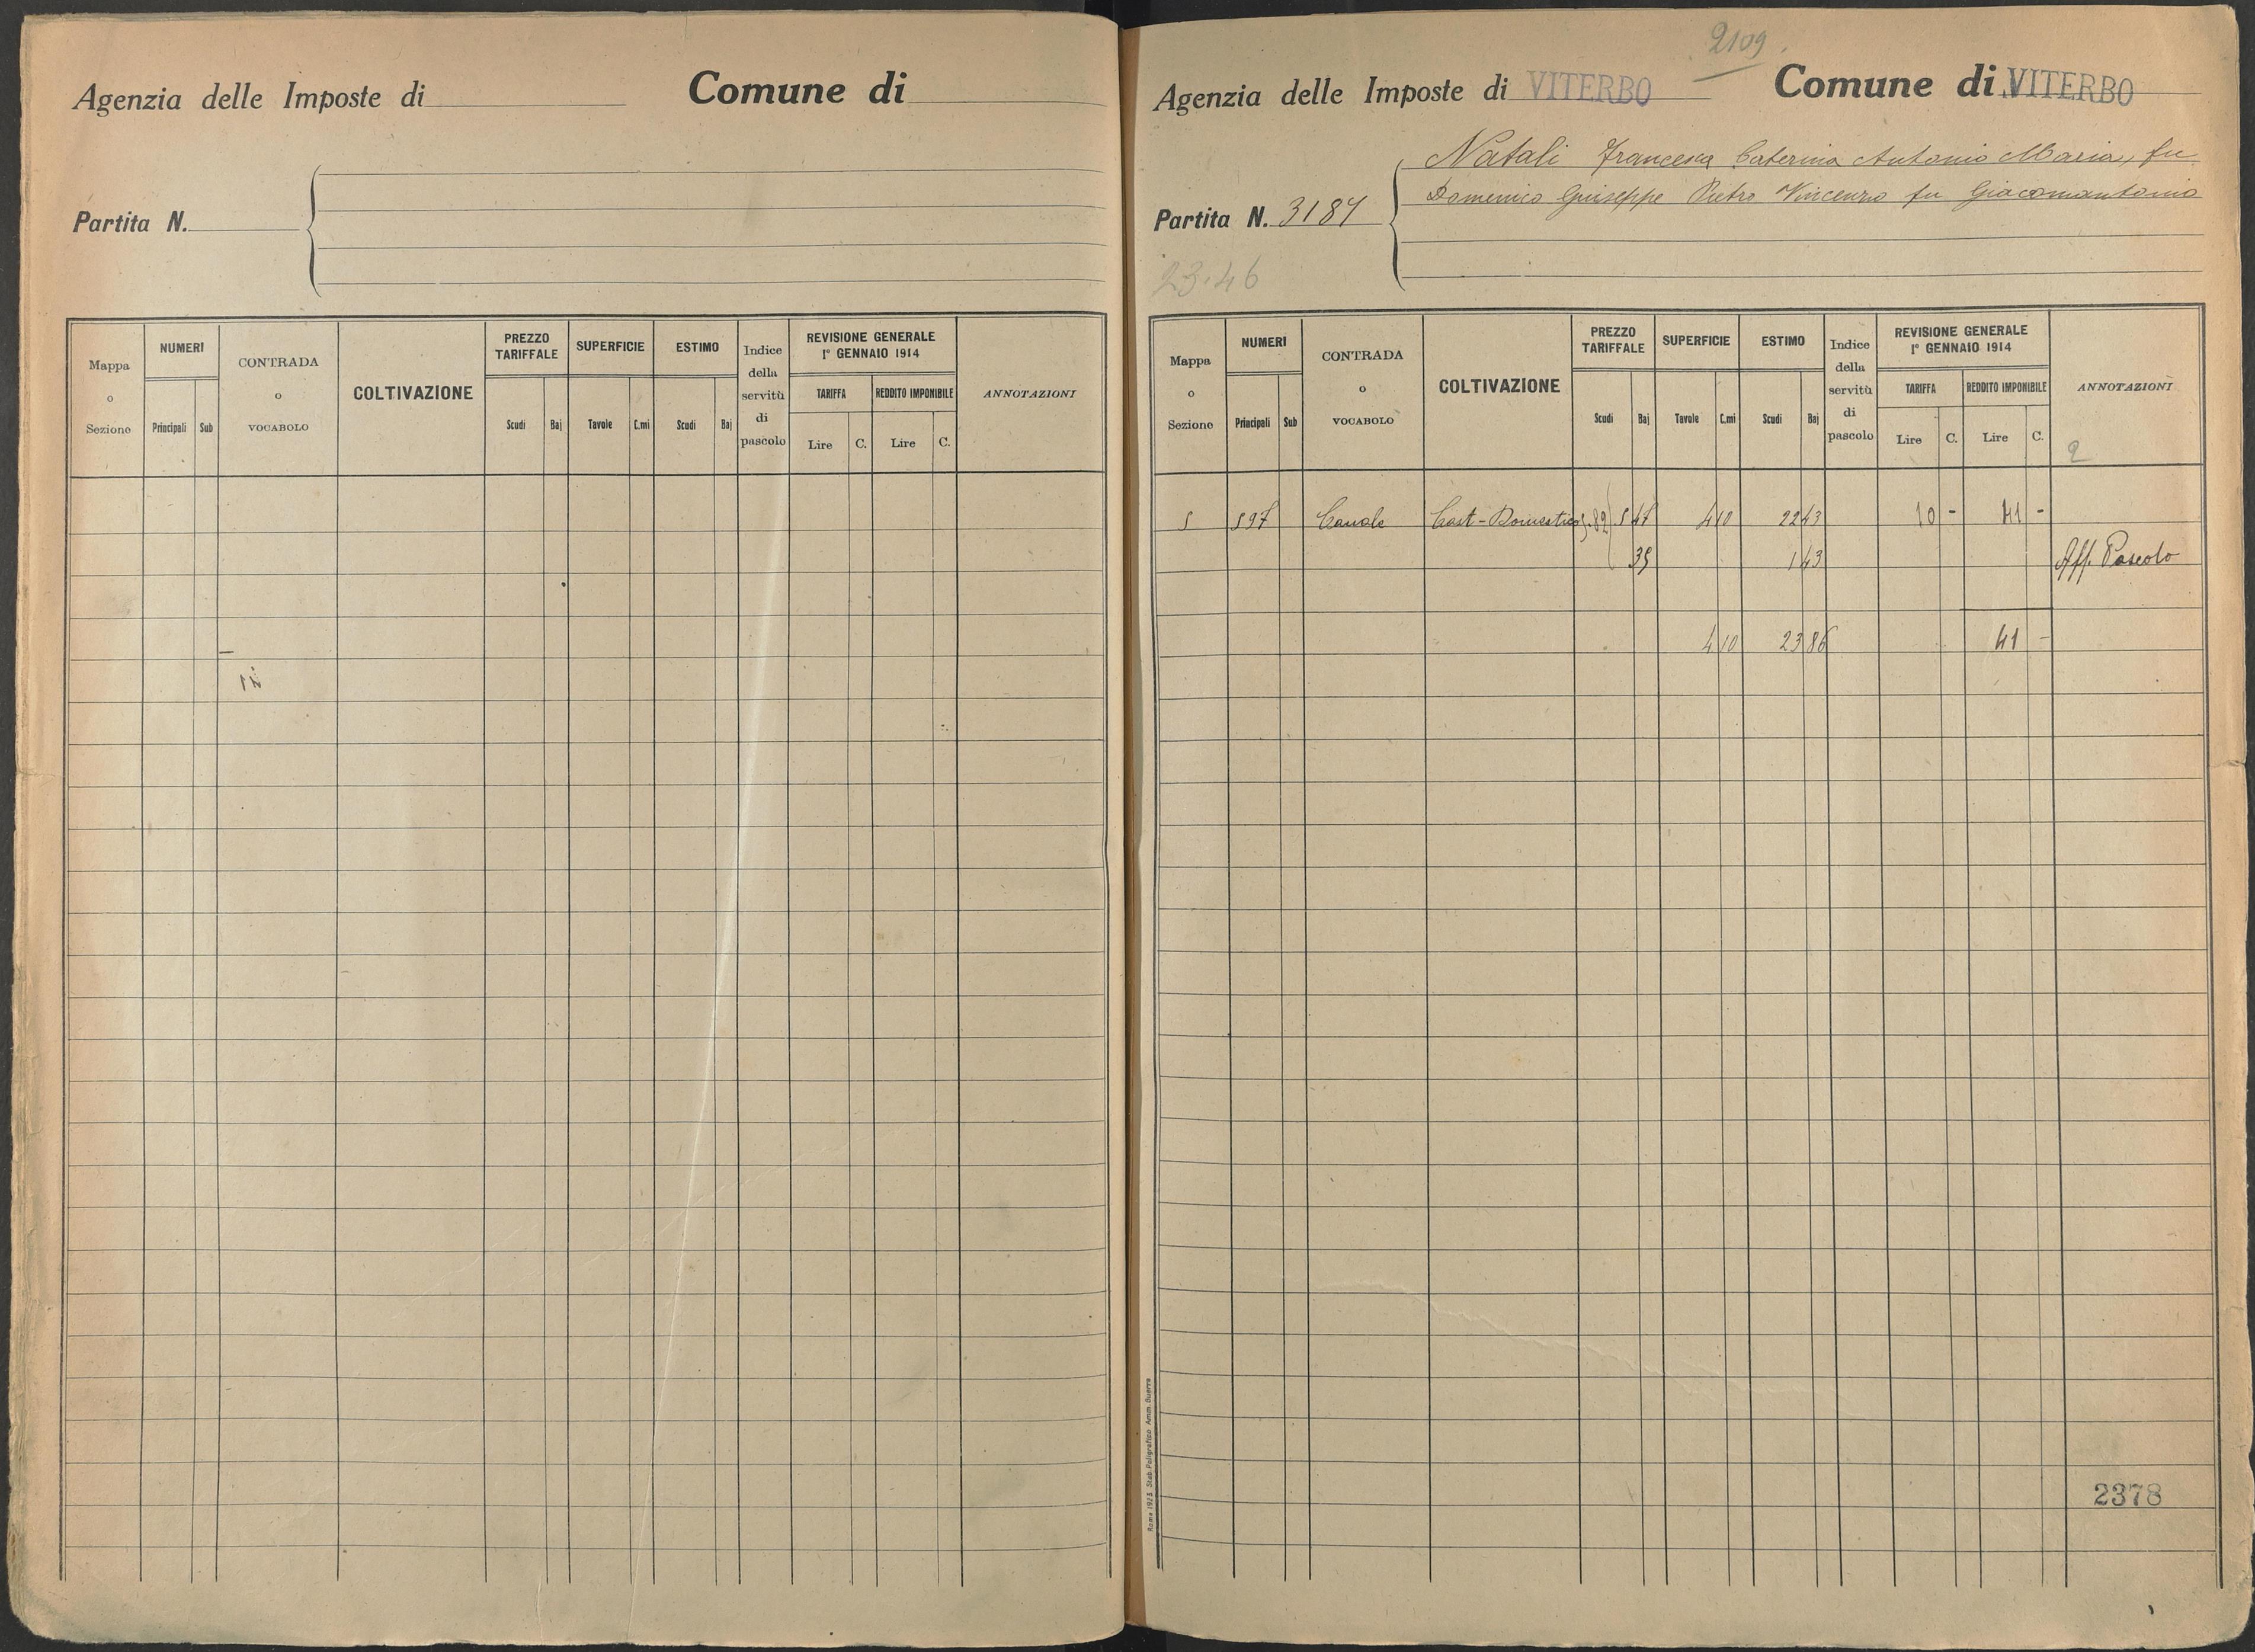 Agenzia delle Imposte di
Comune di
Partita N.
Mappa o Sezione
NUMERI
Principali
Sub
CONTRADA o VOCABOLO
COLTIVAZIONE
PREZZO TARIFFALE
Scudi
Baj
SUPERFICIE
Tavole
C.mi
ESTIMO
Scudi
Baj
Indice della servitù di pascolo
REVISIONE GENERALE
1° GENNAIO 1914
TARIFFA
Lire
C.
REDDITO IMPONIBILE
Lire
C.
ANNOTAZIONI
2109
Agenzia delle Imposte di VITERBO
Comune di VITERBO
Natali Francesca Caterina Antonio Maria, fu
Domenico Giuseppe Pietro Vincenzo fu Giacomantonio
Partita N. 3187
23.46
Mappa o Sezione
NUMERI
Principali
Sub
CONTRADA o VOCABOLO
COLTIVAZIONE
PREZZO TARIFFALE
Scudi
Baj
SUPERFICIE
Tavole
C.mi
ESTIMO
Scudi
Baj
Indice della servitù di pascolo
REVISIONE GENERALE
1° GENNAIO 1914
TARIFFA
Lire
C.
REDDITO IMPONIBILE
Lire
C.
ANNOTAZIONI
2
5 597 Canale Cast-Domestico 5.82 5 47 4 10 22 43 10 - 41 -
35 1 43 Aff. Pascolo
4 10 23 86 41 -
Roma 1923. Stab. Poligrafico Amm. Guerra
2378